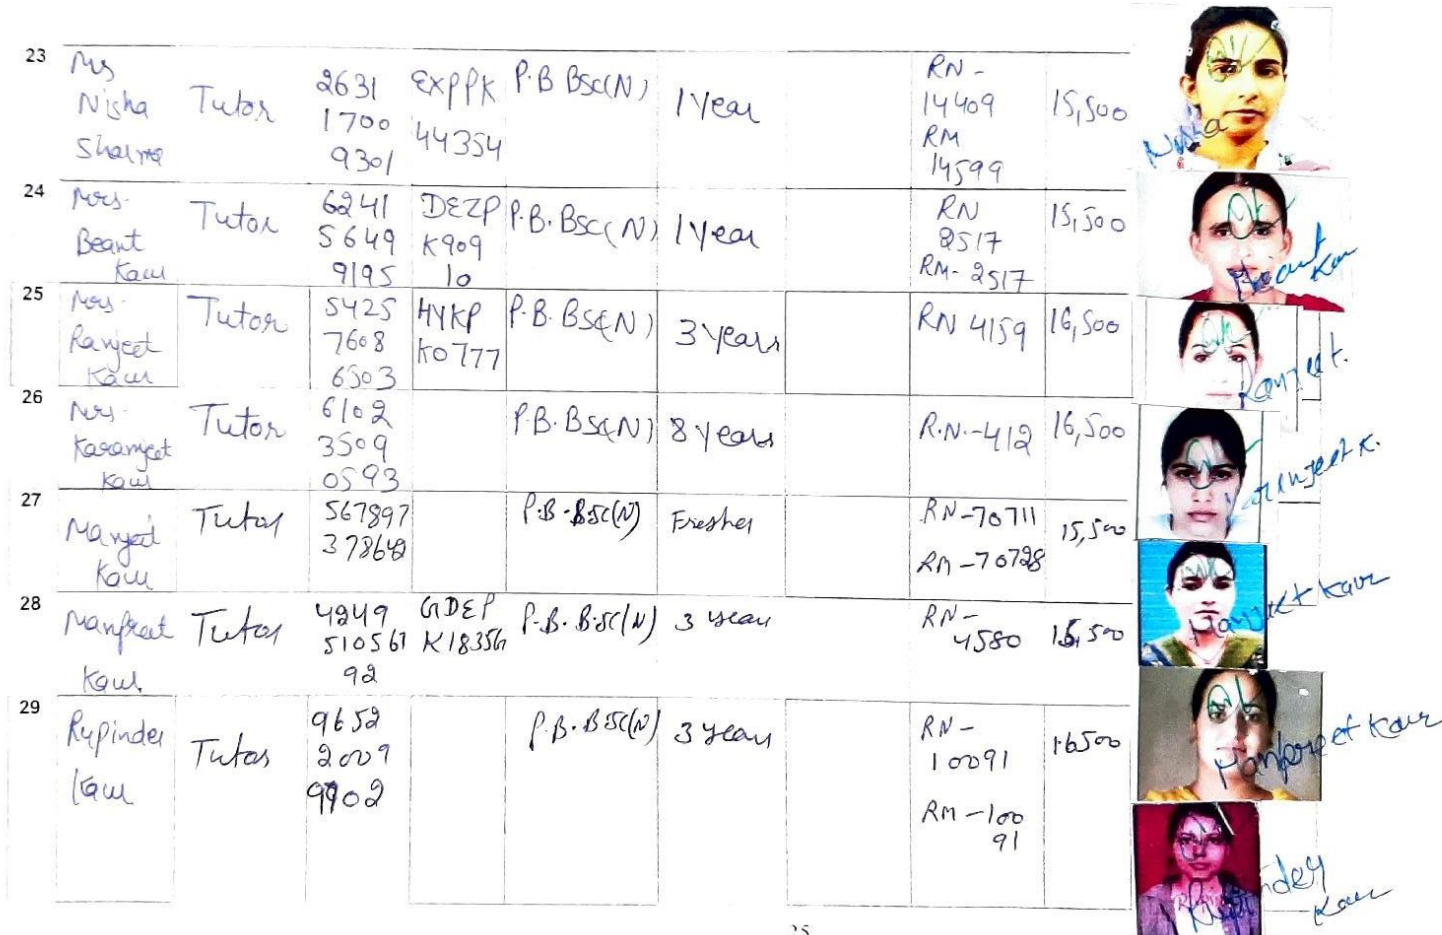 23
Ms
Nisha
Sharma
Tutor
2631
1700
9301
EXPPK
44354
P.B BSc(N)
1 Year
RN -
14409
RM
14599
15,500
Nisha
24
Mrs.
Beant
Kaur
Tutor
6241
5649
9195
DEZP
K909
10
P.B. BSc(N)
1 Year
RN
2517
RM- 2517
15,500
Beant
Kaur
25
Mrs.
Ranjeet
Kaur
Tutor
5425
7608
6503
HYKP
K0777
P.B. BSc(N)
3 Years
RN 4159
16,500
Ranjeet K.
26
Mrs.
Karamjeet
Kaur
Tutor
6102
3509
0593
P.B. BSc(N)
8 Years
R.N.-412
16,500
27
Manjeet
Kaur
Tutor
567897
P.B.BSc(N)
Fresher
RN-70711
RM-70728
15,500
Manjeet Kaur
28
Manpreet
Kaur.
Tutor
4249
510561
92
P.B. B.SC(N)
3 year
RN-
4580
Manpreet Kaur
29
Rupinder
Kaur
Tutor
9652
2009
P.B.BSC(N)
3 years
RN-
10091
RM-100
91
16500
Rupinder
Kaur